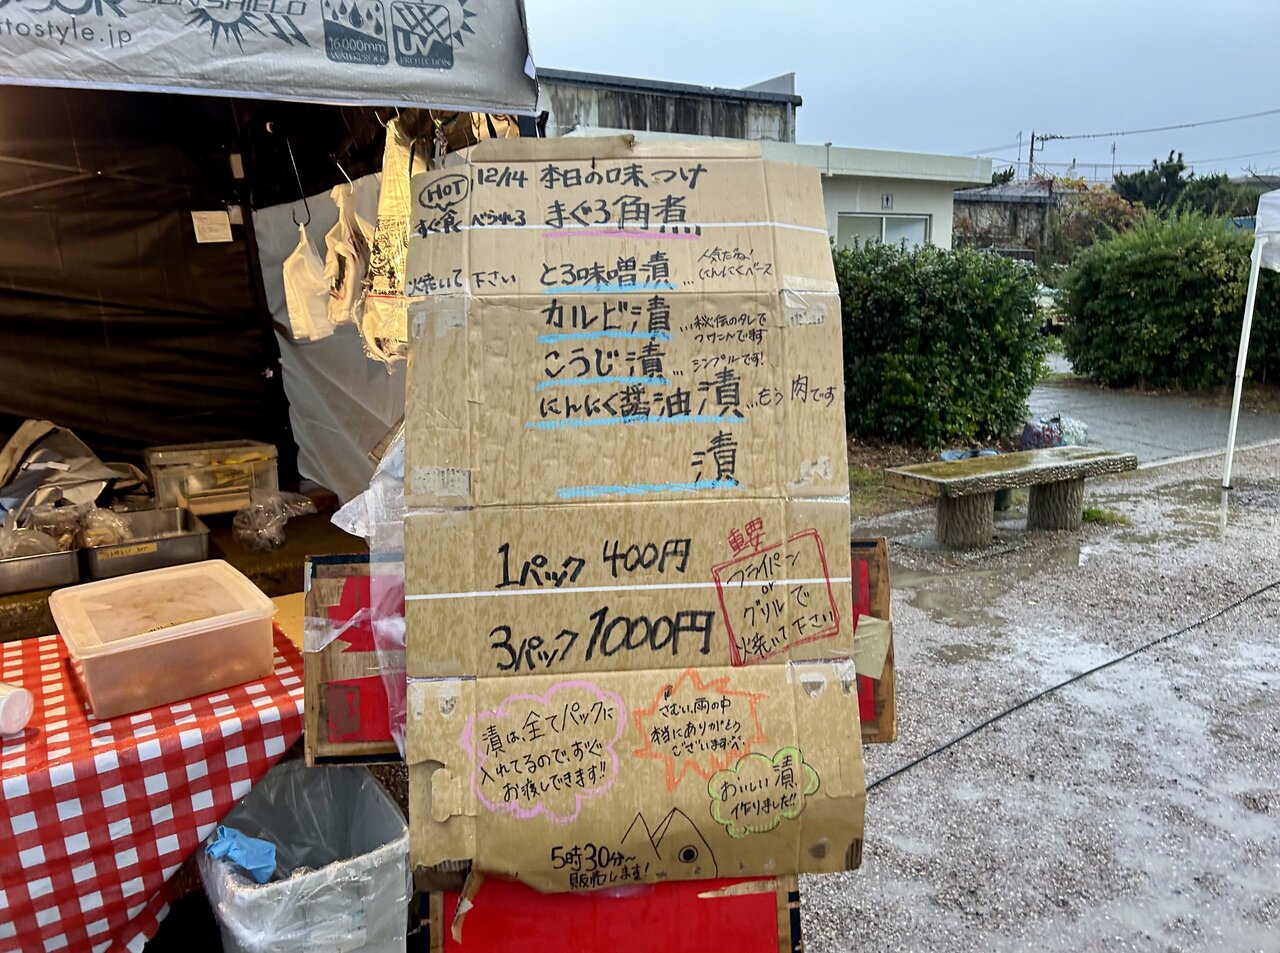 ttostyle.jp
16,000mm
WATERPROOF
UV
PROTECTION
12/14 本日の味つけ
HOT
すぐ食べられる まぐろ角煮
焼いて下さい とろ味噌漬…
人気だね!
にんにくベース
カルビ漬…秘伝のタレで
こうじ漬…シンプルです!
にんにく醤油漬…もう肉です
漬
1パック 400円
3パック 1000円
重要
フライパン
or
グリルで
焼いて下さい
漬は、全てパックに
入れてるので、すぐ
お渡しできます!!
さむい、雨の中
本当にありがとう
ございます
おいしい漬
作りました!!
5時30分~
販売します!